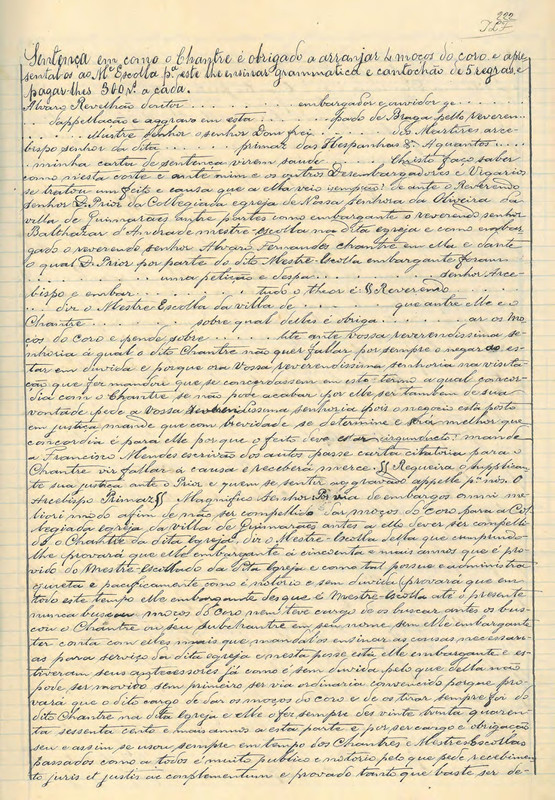 222
127
Sentença em como o Chantre é obrigado a arranjar 4 moços do coro e apre-
sental-os ao Me Escolla pa este lhe ensinar grammatica e cantochão de 5 regras, e
pagar-lhes 360 rs. a cada.
Alvaro Revelhão doutor . . . . . . . . . embargador e ouvidor ge . . . . . .
. . . dappellação e aggravo em esta . . . . . . pado de Braga pello reveren . . .
. . . . Illustre senhor o senhor Dom frei . . . . . . dos Martires arce-
bispo senhor da dita . . . . . . primaz das Hespanhas &. Aquantos . . . .
minha carta de sentença virem saude . . . . . . Christo faço saber
como nesta corte e ante mim e os outros Desembargadores e Vigario
se tratou um feito e causa que a ella veio de ante o Reverendo
senhor D. Prior da Collegiada egreja de Nossa Senhora da Oliveira da
villa de Guimarães antre partes como embargante o reverendo senhor
Balthazar d'Andrade mestre-escolla na dita egreja e como embar-
gado o reverendo senhor Alvaro Fernandes Chantre em ella e dante
o qual D. Prior por parte do dito Mestre-Escolla embargante foram
. . . . . . . . uma petição e despa . . . . . . . . senhor Arce-
bispo e embar . . . . . . . tudo o theor é: §§ Reverendo
. . . . diz o Mestre-Escolla da villa de . . . . . . . . que antre elle e o
Chantre . . . . . . . . sobre qual delles é obriga . . . . . . ar os mo-
ços do coro e pende sobre . . . . . lite ante vossa reverendissima se-
nhoria á qual o dito Chantre não quer fallar por sempre o negocio es-
tar em duvida e porque ora vossa reverendissima senhoria na visita-
ção que fez mandou que se concordassem em este termo a qual concor-
dia com o Chantre se não pode acabar por elle ser tambem de sua
vontade pede a vossa reverendissima senhoria pois o negocio está posto
em justiça mande que com brevidade se determine e será melhor que
concordia é para elle por que o feito deve mande
a Francisco Mendes escrivão dos autos passe carta citatoria para o
Chantre vir fallar á causa e receberá merce. §§ Requeira o supplican-
te sua justiça ante o Prior e quem se sentir aggravado appelle pa nós. O
Arcebispo Primaz §§ Magnifico Senhor Por via de embargos omni me-
liori modo afim de não ser compellido dar moços do coro para a Col-
legiada egreja da villa de Guimarães antes a elle dever ser compelli-
do o Chantre da dita egreja, diz o Mestre-Escolla della que cumprindo-
lhe provará que elle embargante á cincoenta e mais annos que é pro-
vido do Mestre-Escollado da dita Egreja e como tal possue e administra
quieta e pacificamente como é notorio e sem duvida provará que em
todo este tempo elle embargante desque é Mestre-Escolla até o presente
nunca buscou moços do coro nem teve cargo de os buscar antes os bus-
cou o Chantre ou seu subchantre em seu nome sem elle embargante
ter conta com elles mais que mandal-os ensinar as cousas necessari-
as para serviço da dita egreja e nesta posse está elle embargante e es-
tiveram seus antecessores já como é sem duvida pelo que della não
pode ser movido sem primeiro ser via ordinaria convencido porque pro-
vará que o dito cargo de dar os moços do coro e de os tirar sempre foi do
dito Chantre na dita egreja e elle o fez sempre des vinte trinta quaren-
ta sessenta cento e mais annos a esta parte e por ser cargo e obrigação
seu e assim se usou sempre em tempo dos Chantres e Mestres Escollas
passados como a todos é muito publico e notorio pelo que pede recebimen-
to juris et justis ac complementum e provado tanto que baste ser de-